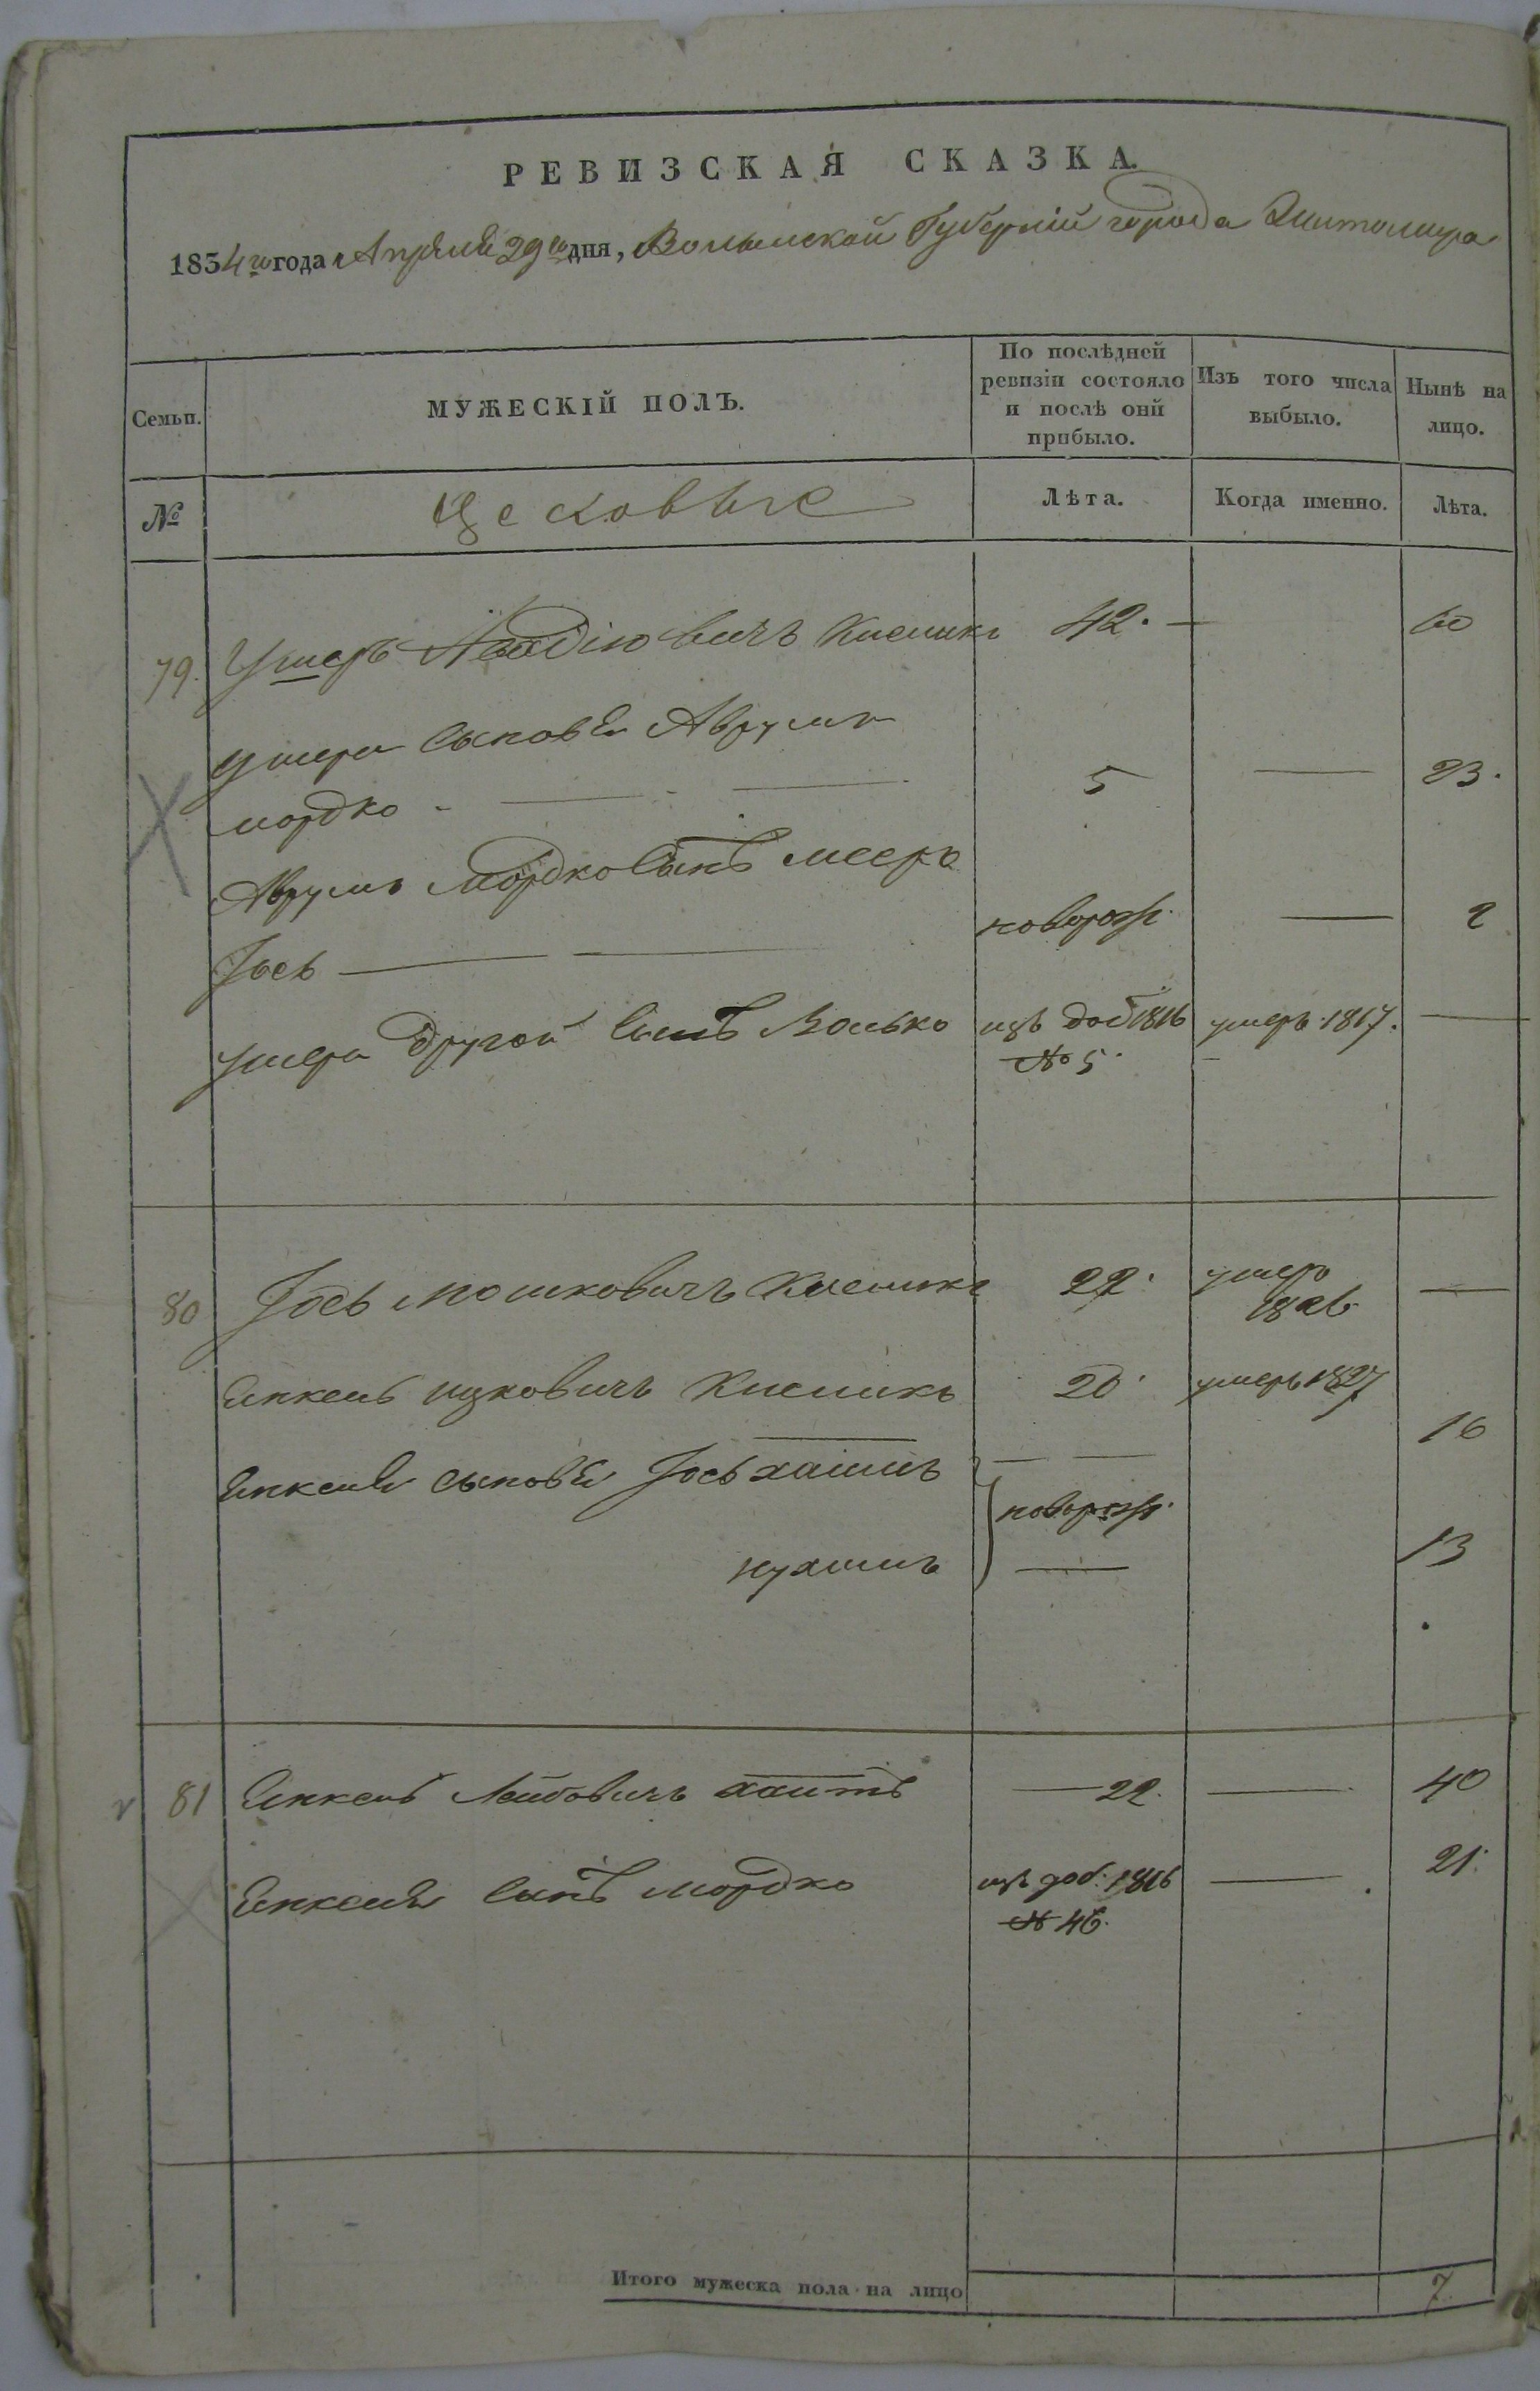 РЕВИЗСКАЯ СКАЗКА.
1834го года Апреля 29го дня, Волынской Губерніи города Житомира
Семьи.
МУЖЕСКІЙ ПОЛЪ.
По послѣдней ревизіи состояло и послѣ оній прибыло.
Изъ того числа выбыло.
Нынѣ на лицо.
№
Цеховые
Лѣта.
Когда именно.
Лѣта.
79. Ушеръ 42. — 60
Ушера сыновья Аврумъ
мордко - — - — 5 — 23.
Аврумъ Мордко сынъ мееръ
Іось — — новорож. — 2
Ушера другой сынъ Волько изъ доб 1816 умеръ 1817. —
№ 5.
80 Іось мошковичъ 22. умеръ —
1826
Янкель ицковичъ 20. умеръ 1827
Янкеля сыновья Іось хаимъ — — 16
новорож.
нухимъ — 13
81 Янкель Лейбовичъ — 22. — 40
Янкеля сынъ мордко изъ доб. 1816 — 21.
№ 46.
Итого мужеска пола на лицо 7